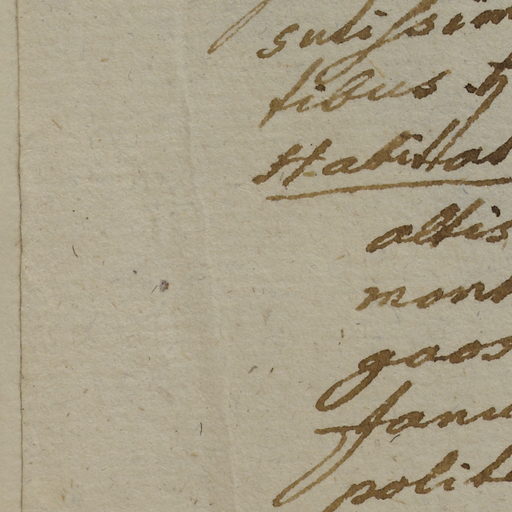 sutissim
tibus
Habitat
altis
mont
goos
Janu
polit